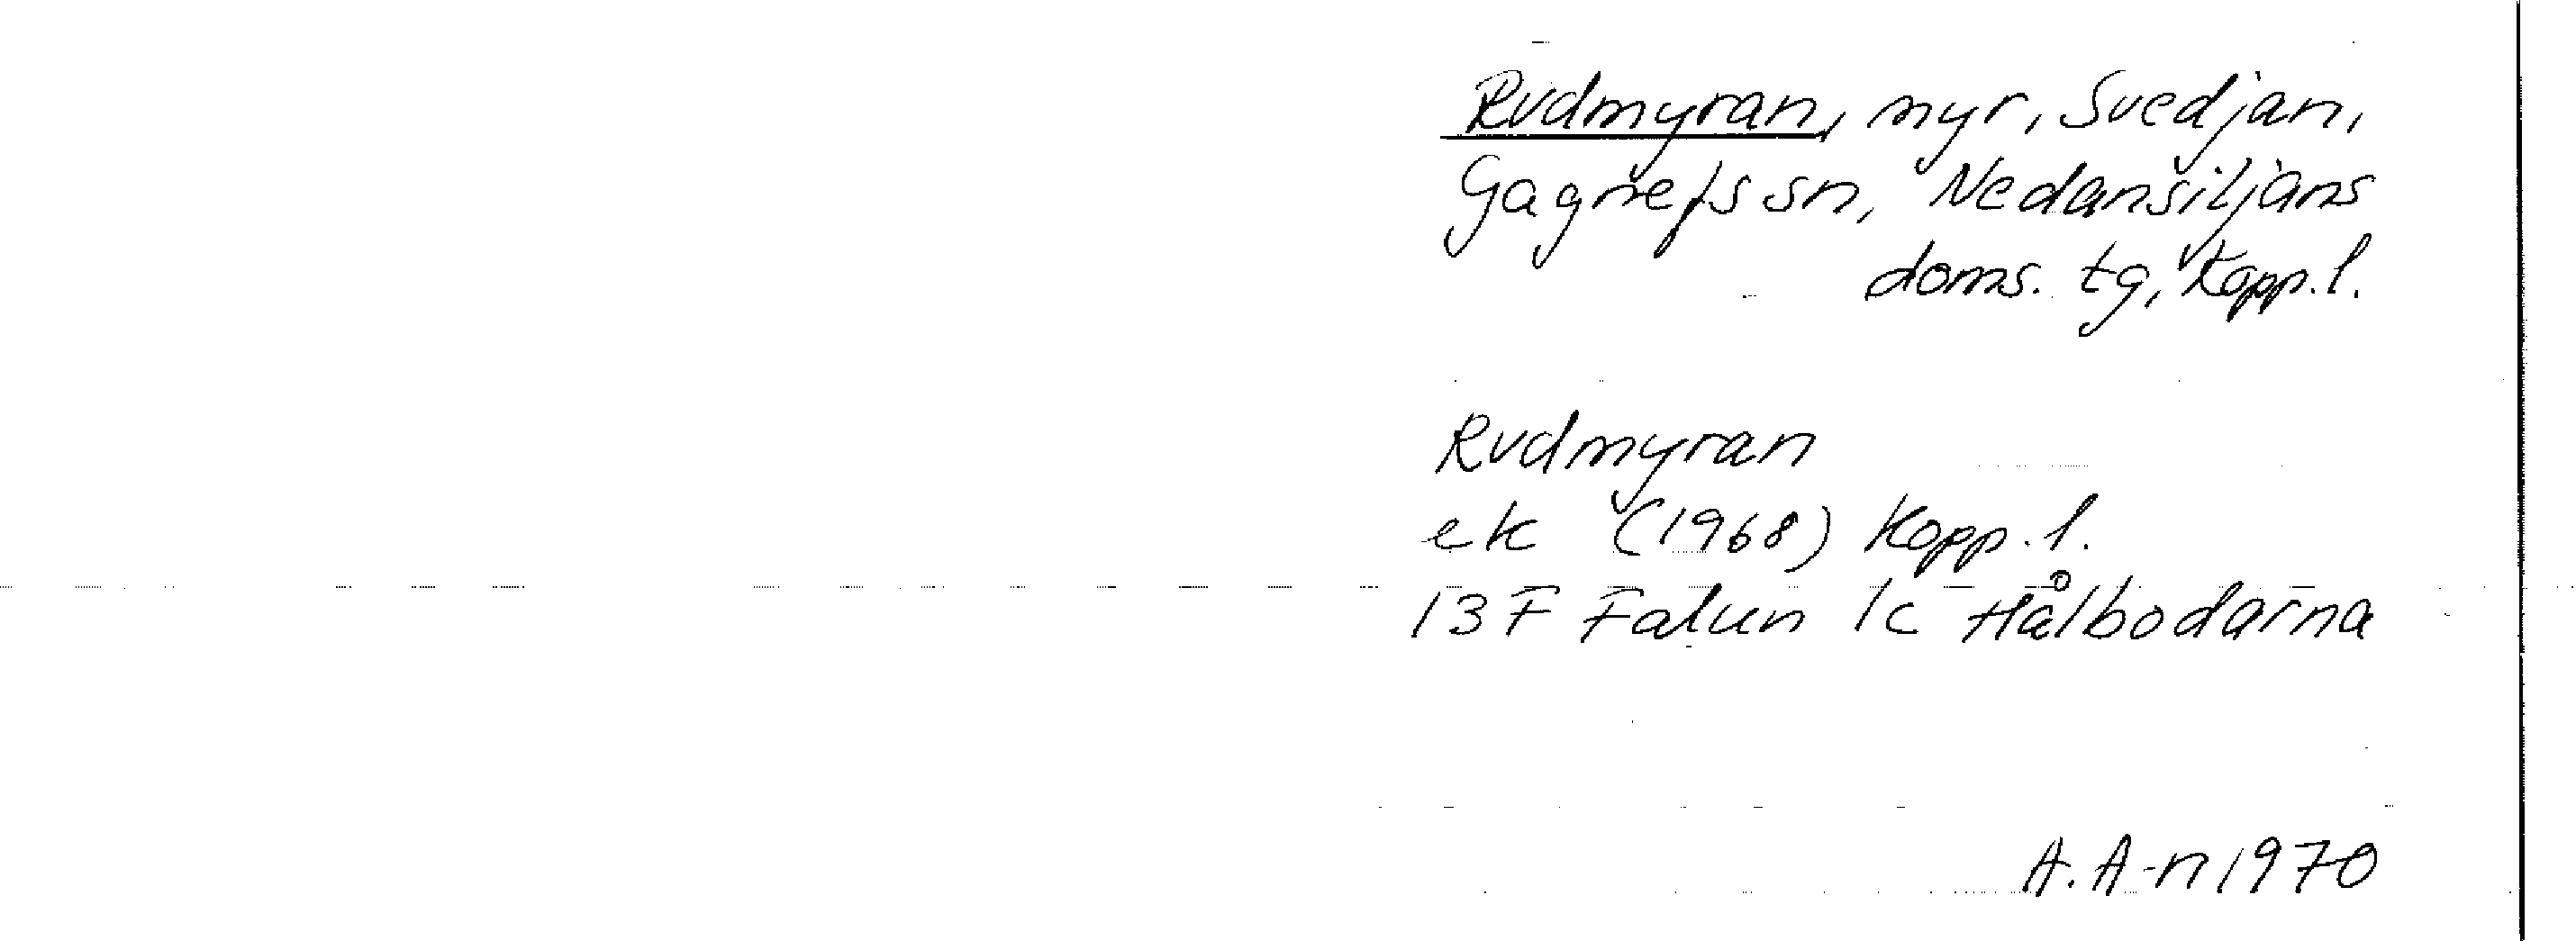 Rudmyran, myr, Svedjan,
Gagnefs sn, Nedansiljans
doms. tg, Kopp. l.
Rudmyran
ek (1968) Kopp. l.
13F Falun 1c Hålbodarna
A. A-n 1970